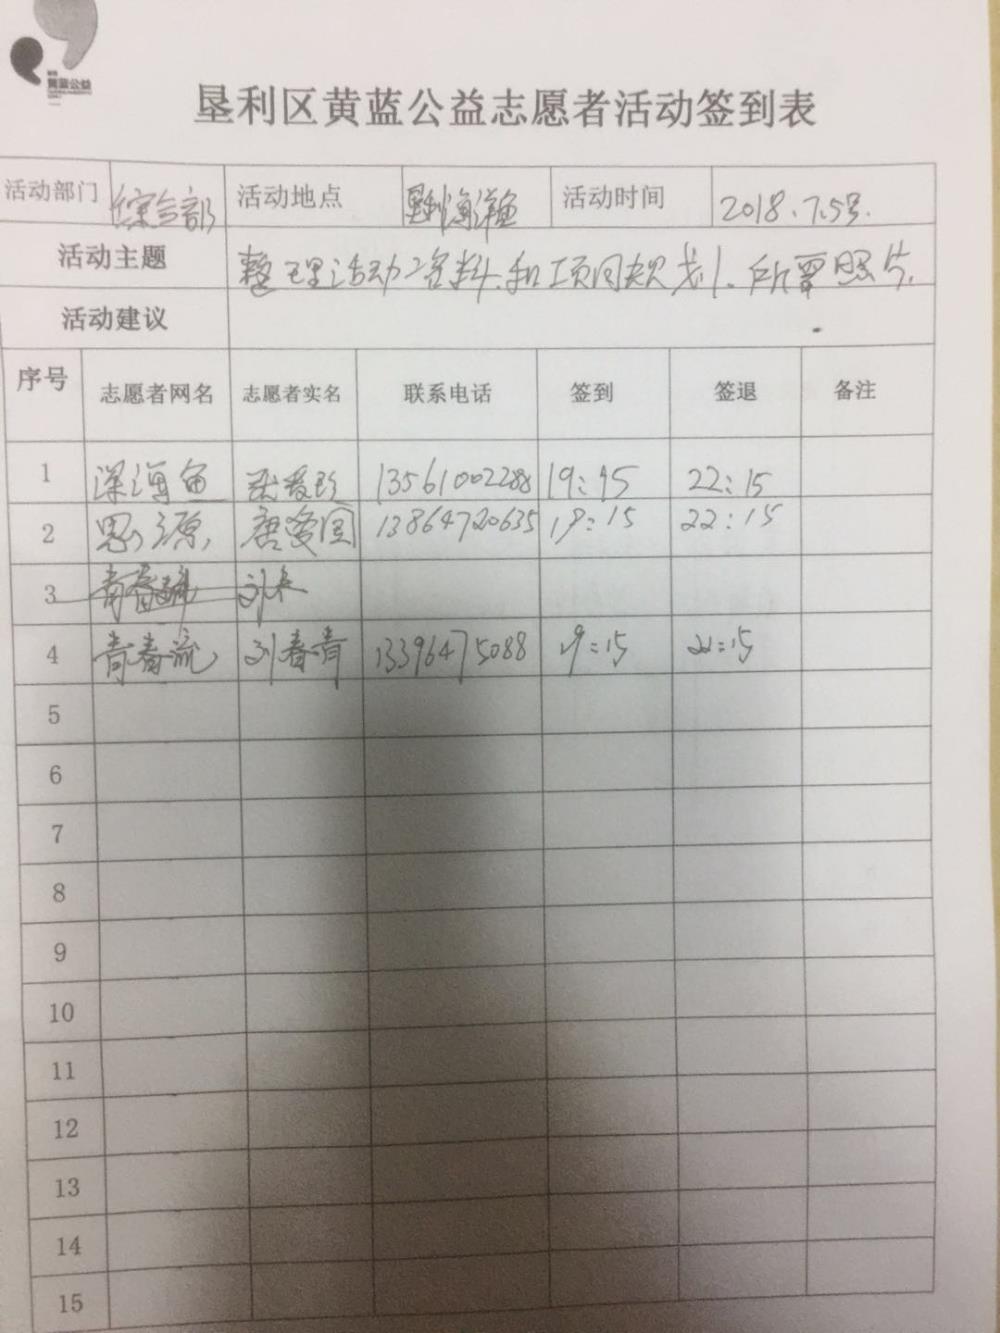 黄蓝公益
垦利区黄蓝公益志愿者活动签到表
活动部门 综合部 活动地点 垦利海洋鱼 活动时间 2018.7.5号.
活动主题 整理活动资料.和项目规划.所需照片.
活动建议
序号 志愿者网名 志愿者实名 联系电话 签到 签退 备注
1 深海鱼 13561002288 19:15 22:15
2 思源 唐爱国 13864720635 19:15 22:15
3 青春 刘春
4 青春流 刘春青 13396475088 19:15 22:15
5
6
7
8
9
10
11
12
13
14
15